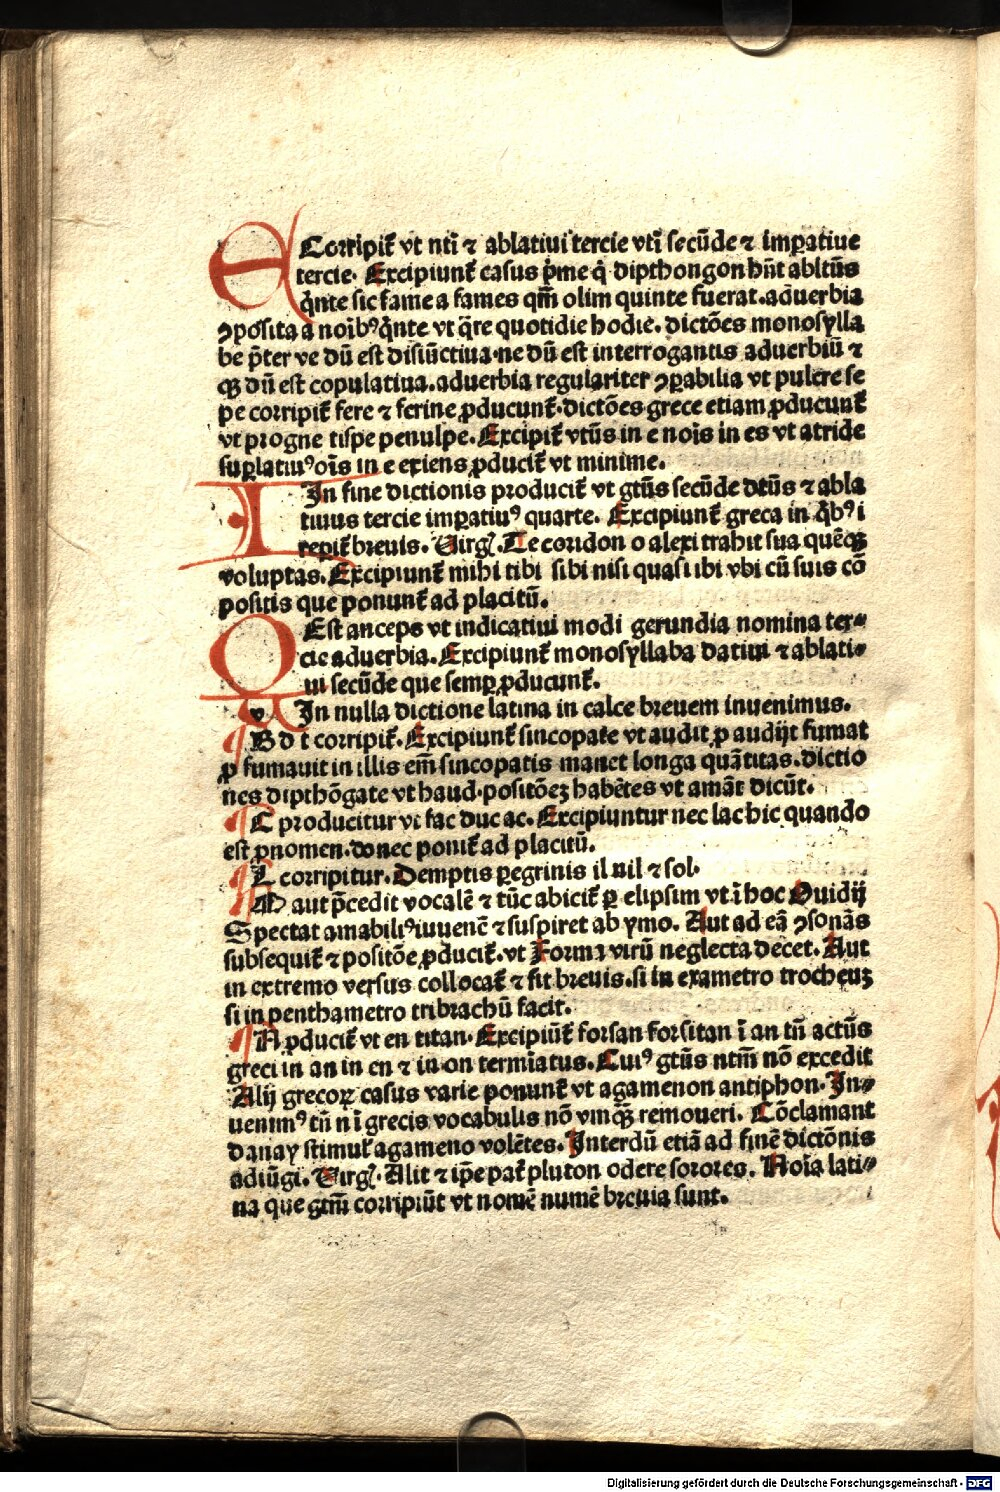 E Corripit̃ vt nti̅ ⁊ ablatiui tercie vti̅ secu̅de ⁊ imꝑatiue
tercie. Excipiunt̃ casus p̃me q̇ dipthongon hn̅t abltu̅s
q̇nte sic fame a fames qm̅ olim quinte fuerat. aduerbia
ꝯposita a noi̅bꝰ q̇nte vt q̅re quotidie hodie. dicto̅es monosylla
be p̅ter ve du̅ est disiu̅ctiua. ne du̅ est interrogantis aduerbiu̅ ⁊
qꝫ du̅ est copulatiua. aduerbia regulariter ꝯꝑabilia vt pulcre se
pe corripit̃ fere ⁊ ferine ꝓducunt̃. dicto̅es grece etiam ꝓducunt̃
vt progne tispe penulpe. Excipit̃ vtu̅s in e noi̅s in es vt atride
suꝑlatiuꝰ oi̅s in e exiens ꝓducit̃ vt minime.
I In fine dictionis producit̃ vt gtu̅s secu̅de dtu̅s ⁊ abla
tiuus tercie imꝑatiuꝰ quarte. Excipiunt̃ greca in q̇bꝰ i
repit̃ breuis. Virgł. Te coridon o alexi trahit sua que̅qꝫ
voluptas. Excipiunt̃ mihi tibi sibi nisi quasi ibi vbi cu̅ suis co̅
positis que ponunt̃ ad placitu̅.
O Est anceps vt indicatiui modi gerundia nomina ter⸗
cie aduerbia. Excipiunt̃ monosyllaba datiui ⁊ ablati⸗
ui secu̅de que semꝑ ꝓducunt̃.
v In nulla dictione latina in calce breuem inuenimus.
B d t corripit̃. Excipiunt̃ sincopate vt audit ꝓ audijt fumat
ꝓ fumauit in illis em̅ sincopatis manet longa qua̅titas. dictio
nes diptho̅gate vt haud. posito̅eꝫ habe̅tes vt ama̅t dicu̅t.
C producitur vt fac duc ac. Excipiuntur nec lac hic quando
est ꝓnomen. donec ponit̃ ad placitu̅.
L corripitur. Demptis ꝑegrinis il nil ⁊ sol.
M aut p̅cedit vocale̅ ⁊ tu̅c abicit̃ ꝑ elipsim vt i̅ hoc Ouidij
Spectat amabiliꝰ iuuene̅ ⁊ suspiret ab ymo. Aut ad ea̅ ꝯsona̅s
subsequit̃ ⁊ posito̅e ꝓducit̃. vt Forma viru̅ neglecta decet. Aut
in extremo versus collocat̃ ⁊ fit breuis. si in exametro trocheuꝫ
si in penthametro tribrachu̅ facit.
N ꝓducit̃ vt en titan. Excipiu̅t̃ forsan forsitan i̅ an tn̅ actu̅s
greci in an in en ⁊ in on termi̅atus. Cuiꝰ gtu̅s ntm̅ no̅ excedit
Alij grecoꝝ casus varie ponunt̃ vt agamenon antiphon. In⸗
uenimꝰ tn̅ n i̅ grecis vocabulis no̅ vnqꝫ̅ remoueri. Co̅clamant
danay stimulꝛ agameno vole̅tes. Interdu̅ etia̅ ad fine̅ dicto̅nis
adiu̅gi. Virgł. Alit ⁊ ip̅e pat̃ pluton odere sorores. Noi̅a lati⸗
na que gtm̅ corripiu̅t vt nome̅ nume̅ breuia sunt.
Digitalisierung gefördert durch die Deutsche Forschungsgemeinschaft - DFG